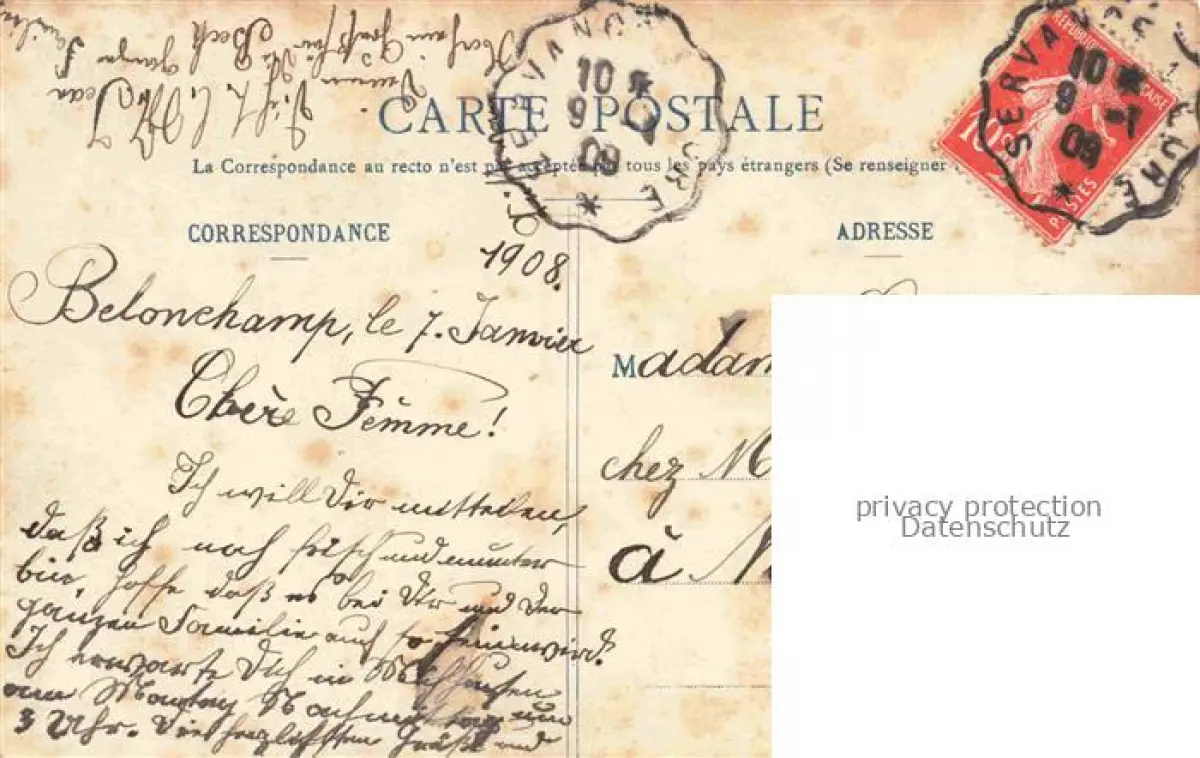 CARTE POSTALE
La Correspondance au recto n'est pas acceptée par tous les pays étrangers (Se renseigner
CORRESPONDANCE
ADRESSE
1908.
Belonchamp, le 7. Janvier
Chère Femme!
Ich will Dir mitteilen,
daß ich noch frisch und munter
bin, hoffe daß es bei Dir und der
ganzen Familie auch so sein wird.
Ich erwarte Dich in
am Montag Nachmittag um
3 Uhr. Die herzlichsten Grüße und
Jean
Madam
chez M
à N
SERVA
URE
10
9 -1
09
RÉPUBLIQUE FRANÇAISE
10
POSTES
privacy protection
Datenschutz